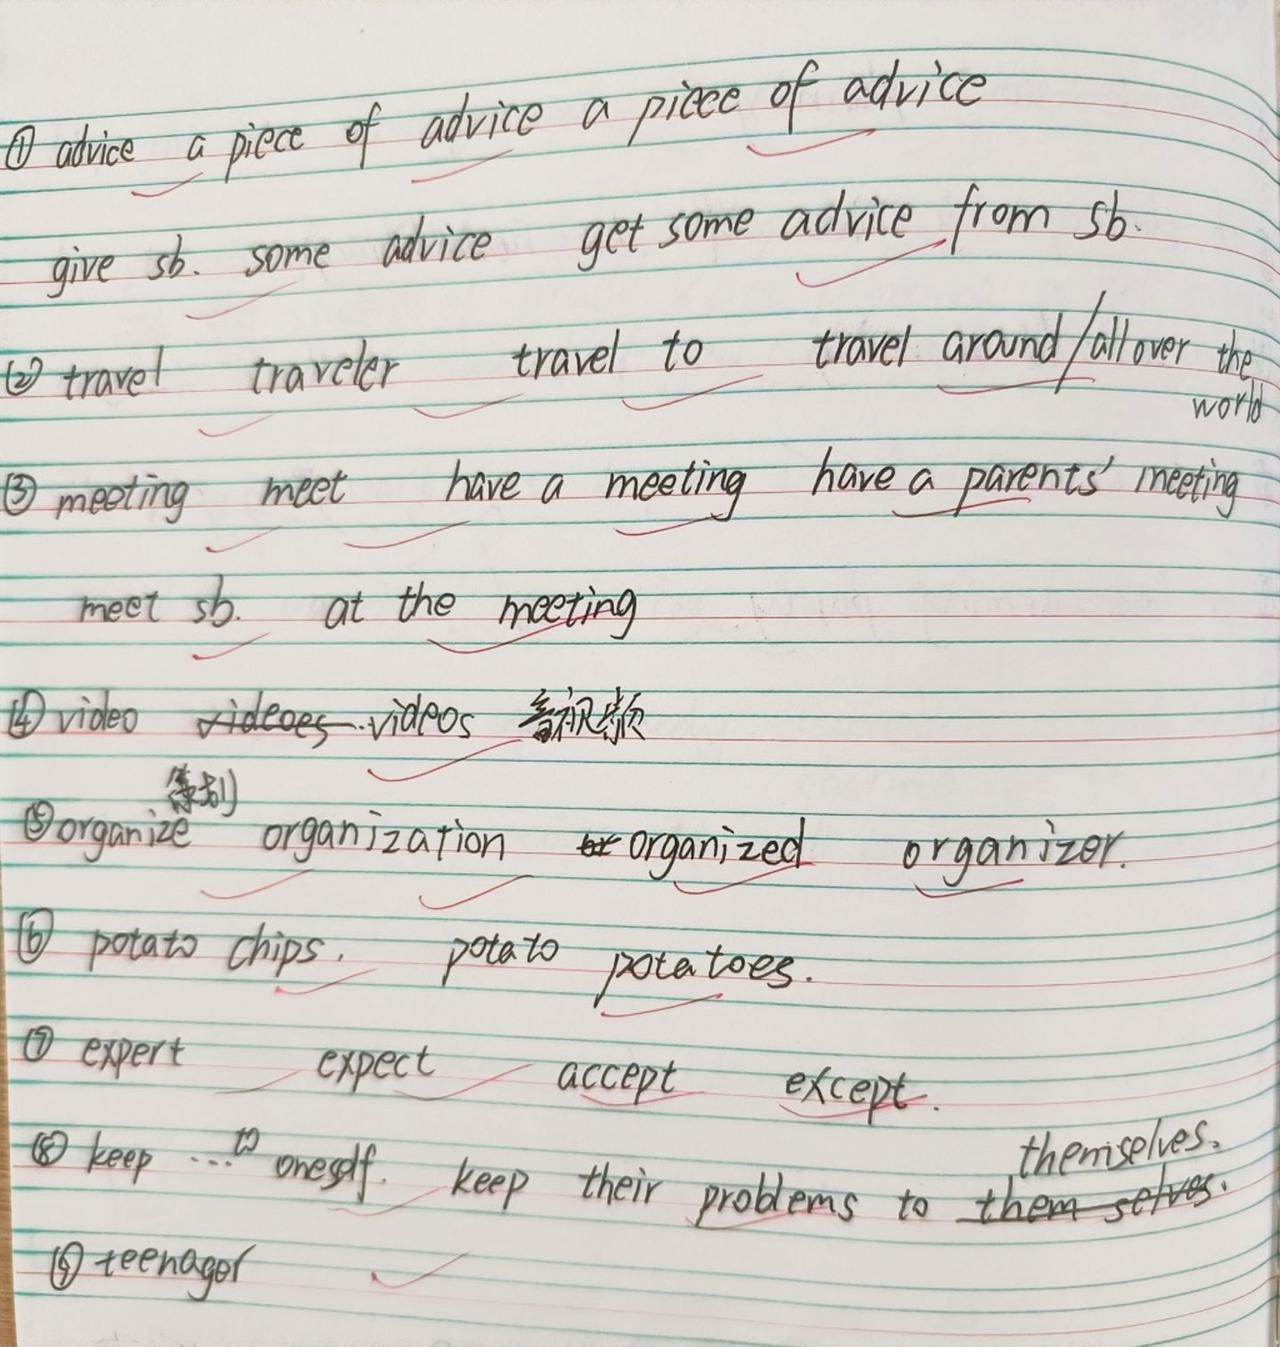 ① advice a piece of advice a piece of advice
give sb. some advice get some advice from sb.
② travel traveler travel to travel around/all over the
world
③ meeting meet have a meeting have a parents' meeting
meet sb. at the meeting
④ video videoes videos 音视频
策划
⑤ organize organization or organized organizer.
⑥ potato chips. potato potatoes.
⑦ expert expect accept except.
⑧ keep ... to oneself. keep their problems to them selves.
themselves.
⑨ teenager